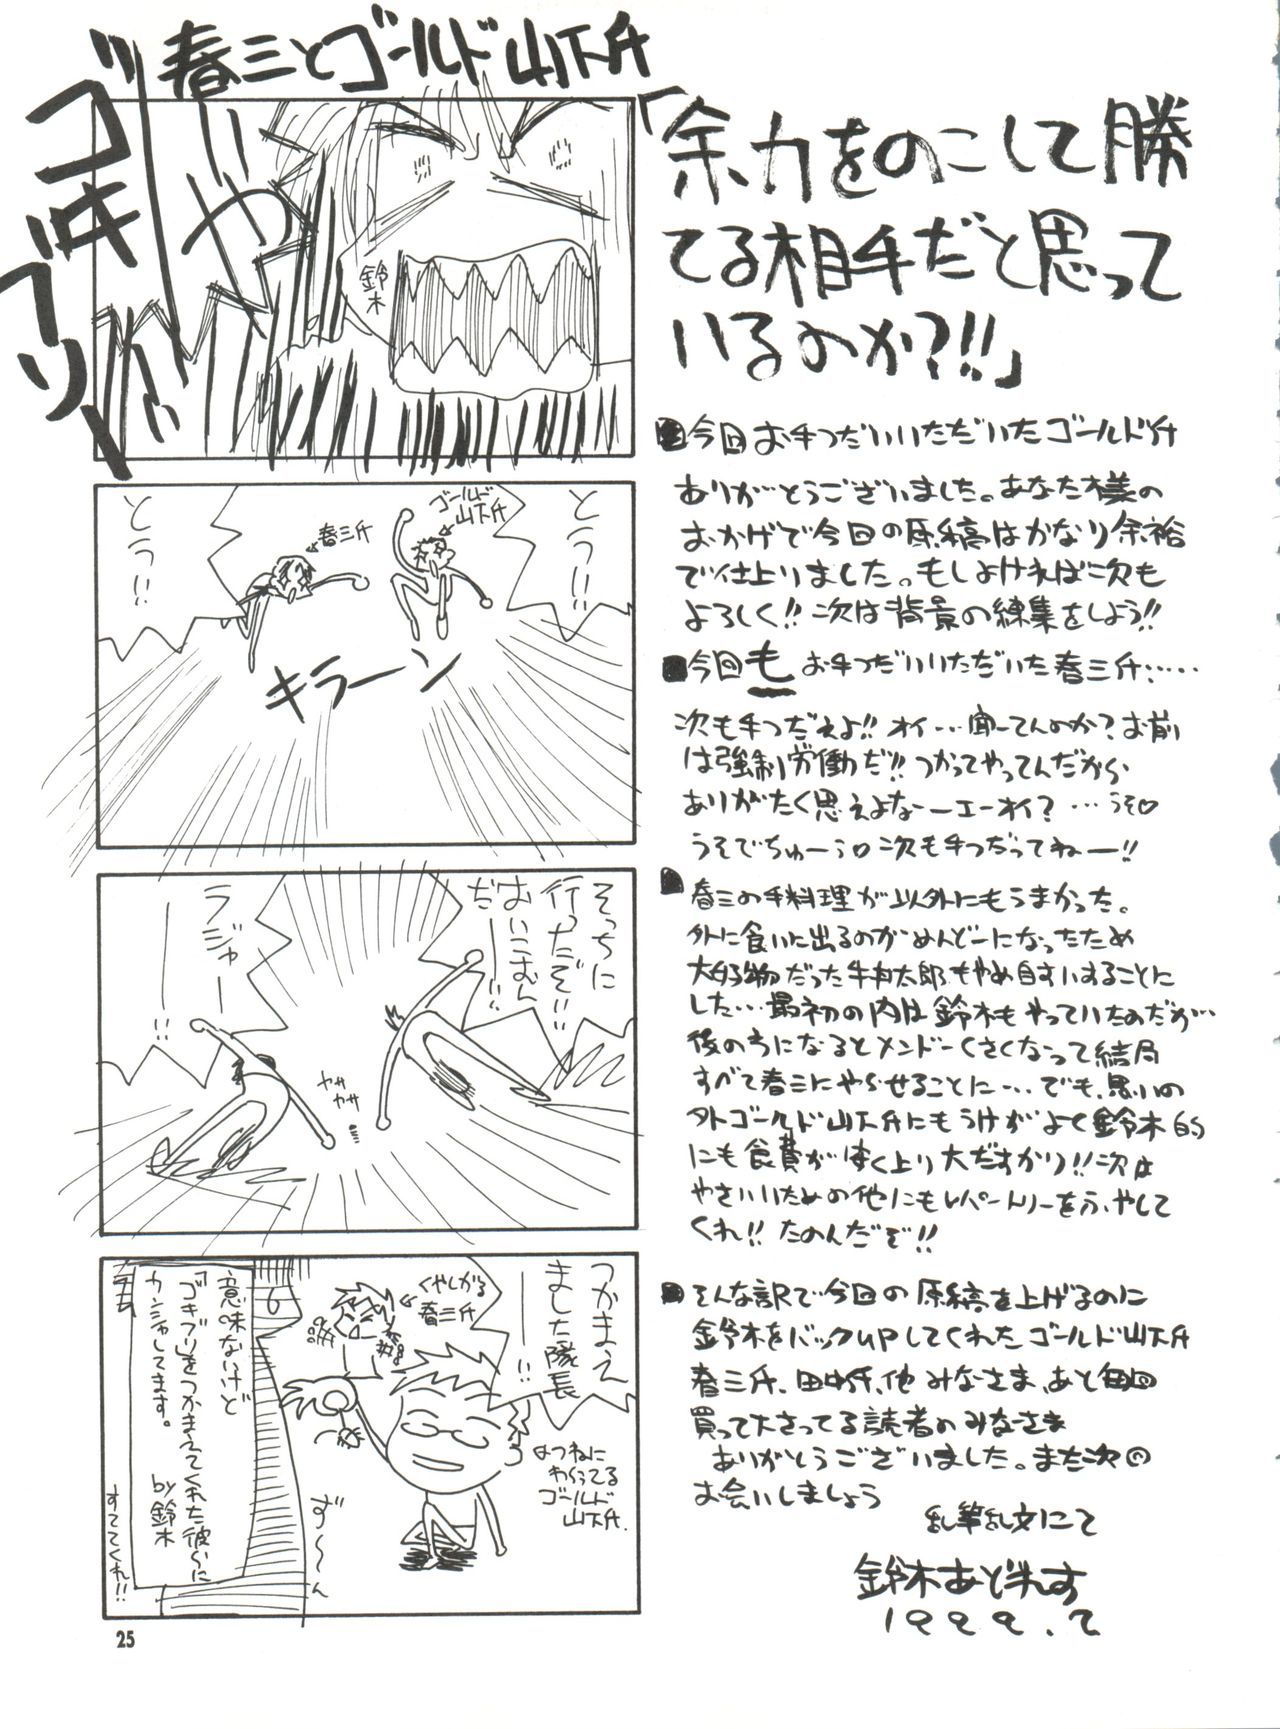 春三とゴールド山下氏
ゴキブリ
じゃ
鈴木
とうっ!!
春三氏
ゴールド
山下氏
とうっ!!
キラーン
そっちに
行ったぞ!!
おいこむん
だ!!
ラジャー
ーー!!
ササ
ササ
つかまえ
ました隊長
ーー!!
くやしがる
春三氏
よつねに
わらってる
ゴールド
山下氏.
ず〜〜ん
意味ないけど
「ゴキブリ」をつかまえてくれた彼らに
カンシャしてます。
by鈴木
すててくれ!!
25
「余力をのこして勝
てる相手だと思って
いるのか?!!」
今回お手つだいいただいたゴールド氏
ありがとうございました。あなた様の
おかげで今回の原稿はかなり余裕
で仕上りました。もしよければ次も
よろしく!!次は背景の練集をしよう!!
今回もお手つだいいただいた春三氏……
次も手つだえよ!!オイ…聞ーてんのか?お前
は強制労働だ!!つかってやってんだから
ありがたく思えよなーエーオイ?…うそ♡
うそでちゅーぅ♡次も手つだってねー!!
春三の手料理が以外にもうまかった。
外に食いに出るのがめんどーになったため
大好物だった牛丼太郎もやめ自すいすることに
した…最初の内は鈴木もやっていたのだが…
後の方になるとメンドーくさくなって結局
すべて春三にやらせることに…でも、思いの
外ゴールド山下氏にもうけがよく鈴木的
にも食費が体く上り大だすかり!!次は
やさいいための他にもレパートリーをふやして
くれ!!たのんだぞ!!
そんな訳で今回の原稿を上げるのに
鈴木をバックupしてくれたゴールド山下氏
春三氏、田中氏、他みなさま、あと毎回
買って下さってる読者のみなさま
ありがとうございました。また次の
お会いしましょう
乱筆乱文にて
鈴木あどれす
1999.2